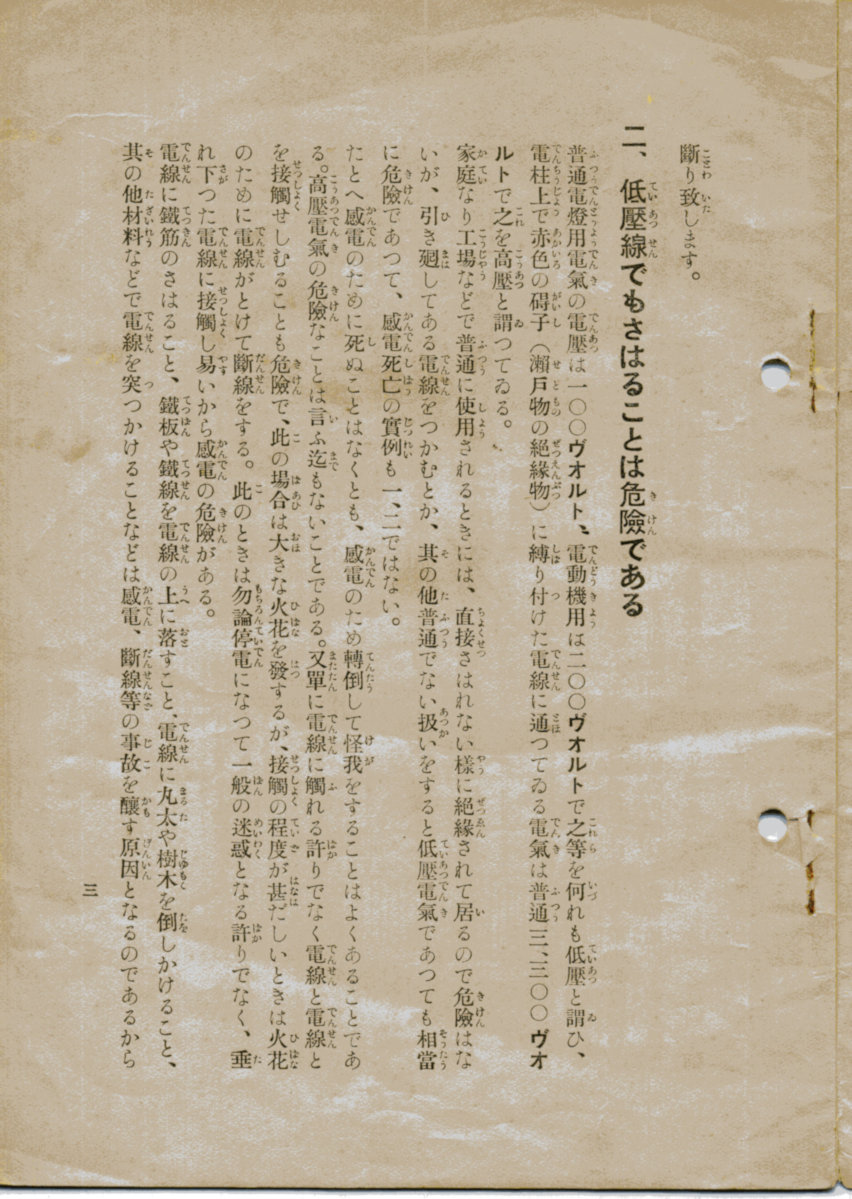 斷り致します。
二、低壓線でもさはることは危險である
普通電燈用電氣の電壓は一〇〇ヴオルト、電動機用は二〇〇ヴオルトで之等を何れも低壓と謂ひ、
電柱上で赤色の碍子（瀨戸物の絕緣物）に縛り付けた電線に通つてゐる電氣は普通三、三〇〇ヴオ
ルトで之を高壓と謂つてゐる。
家庭なり工場などで普通に使用されるときには、直接さはれない樣に絕緣されて居るので危險はな
いが、引き廻してある電線をつかむとか、其の他普通でない扱いをすると低壓電氣であつても相當
に危險であつて、感電死亡の實例も一、二ではない。
たとへ感電のために死ぬことはなくとも、感電のため轉倒して怪我をすることはよくあることであ
る。高壓電氣の危險なことは言ふ迄もないことである。又單に電線に觸れる許りでなく電線と電線と
を接觸せしむることも危險で、此の場合は大きな火花を發するが、接觸の程度が甚だしいときは火花
のために電線がとけて斷線をする。此のときは勿論停電になつて一般の迷惑となる許りでなく、垂
れ下つた電線に接觸し易いから感電の危險がある。
電線に鐵筋のさはること、鐵板や鐵線を電線の上に落すこと、電線に丸太や樹木を倒しかけること、
其の他材料などで電線を突つかけることなどは感電、斷線等の事故を釀す原因となるのであるから
三